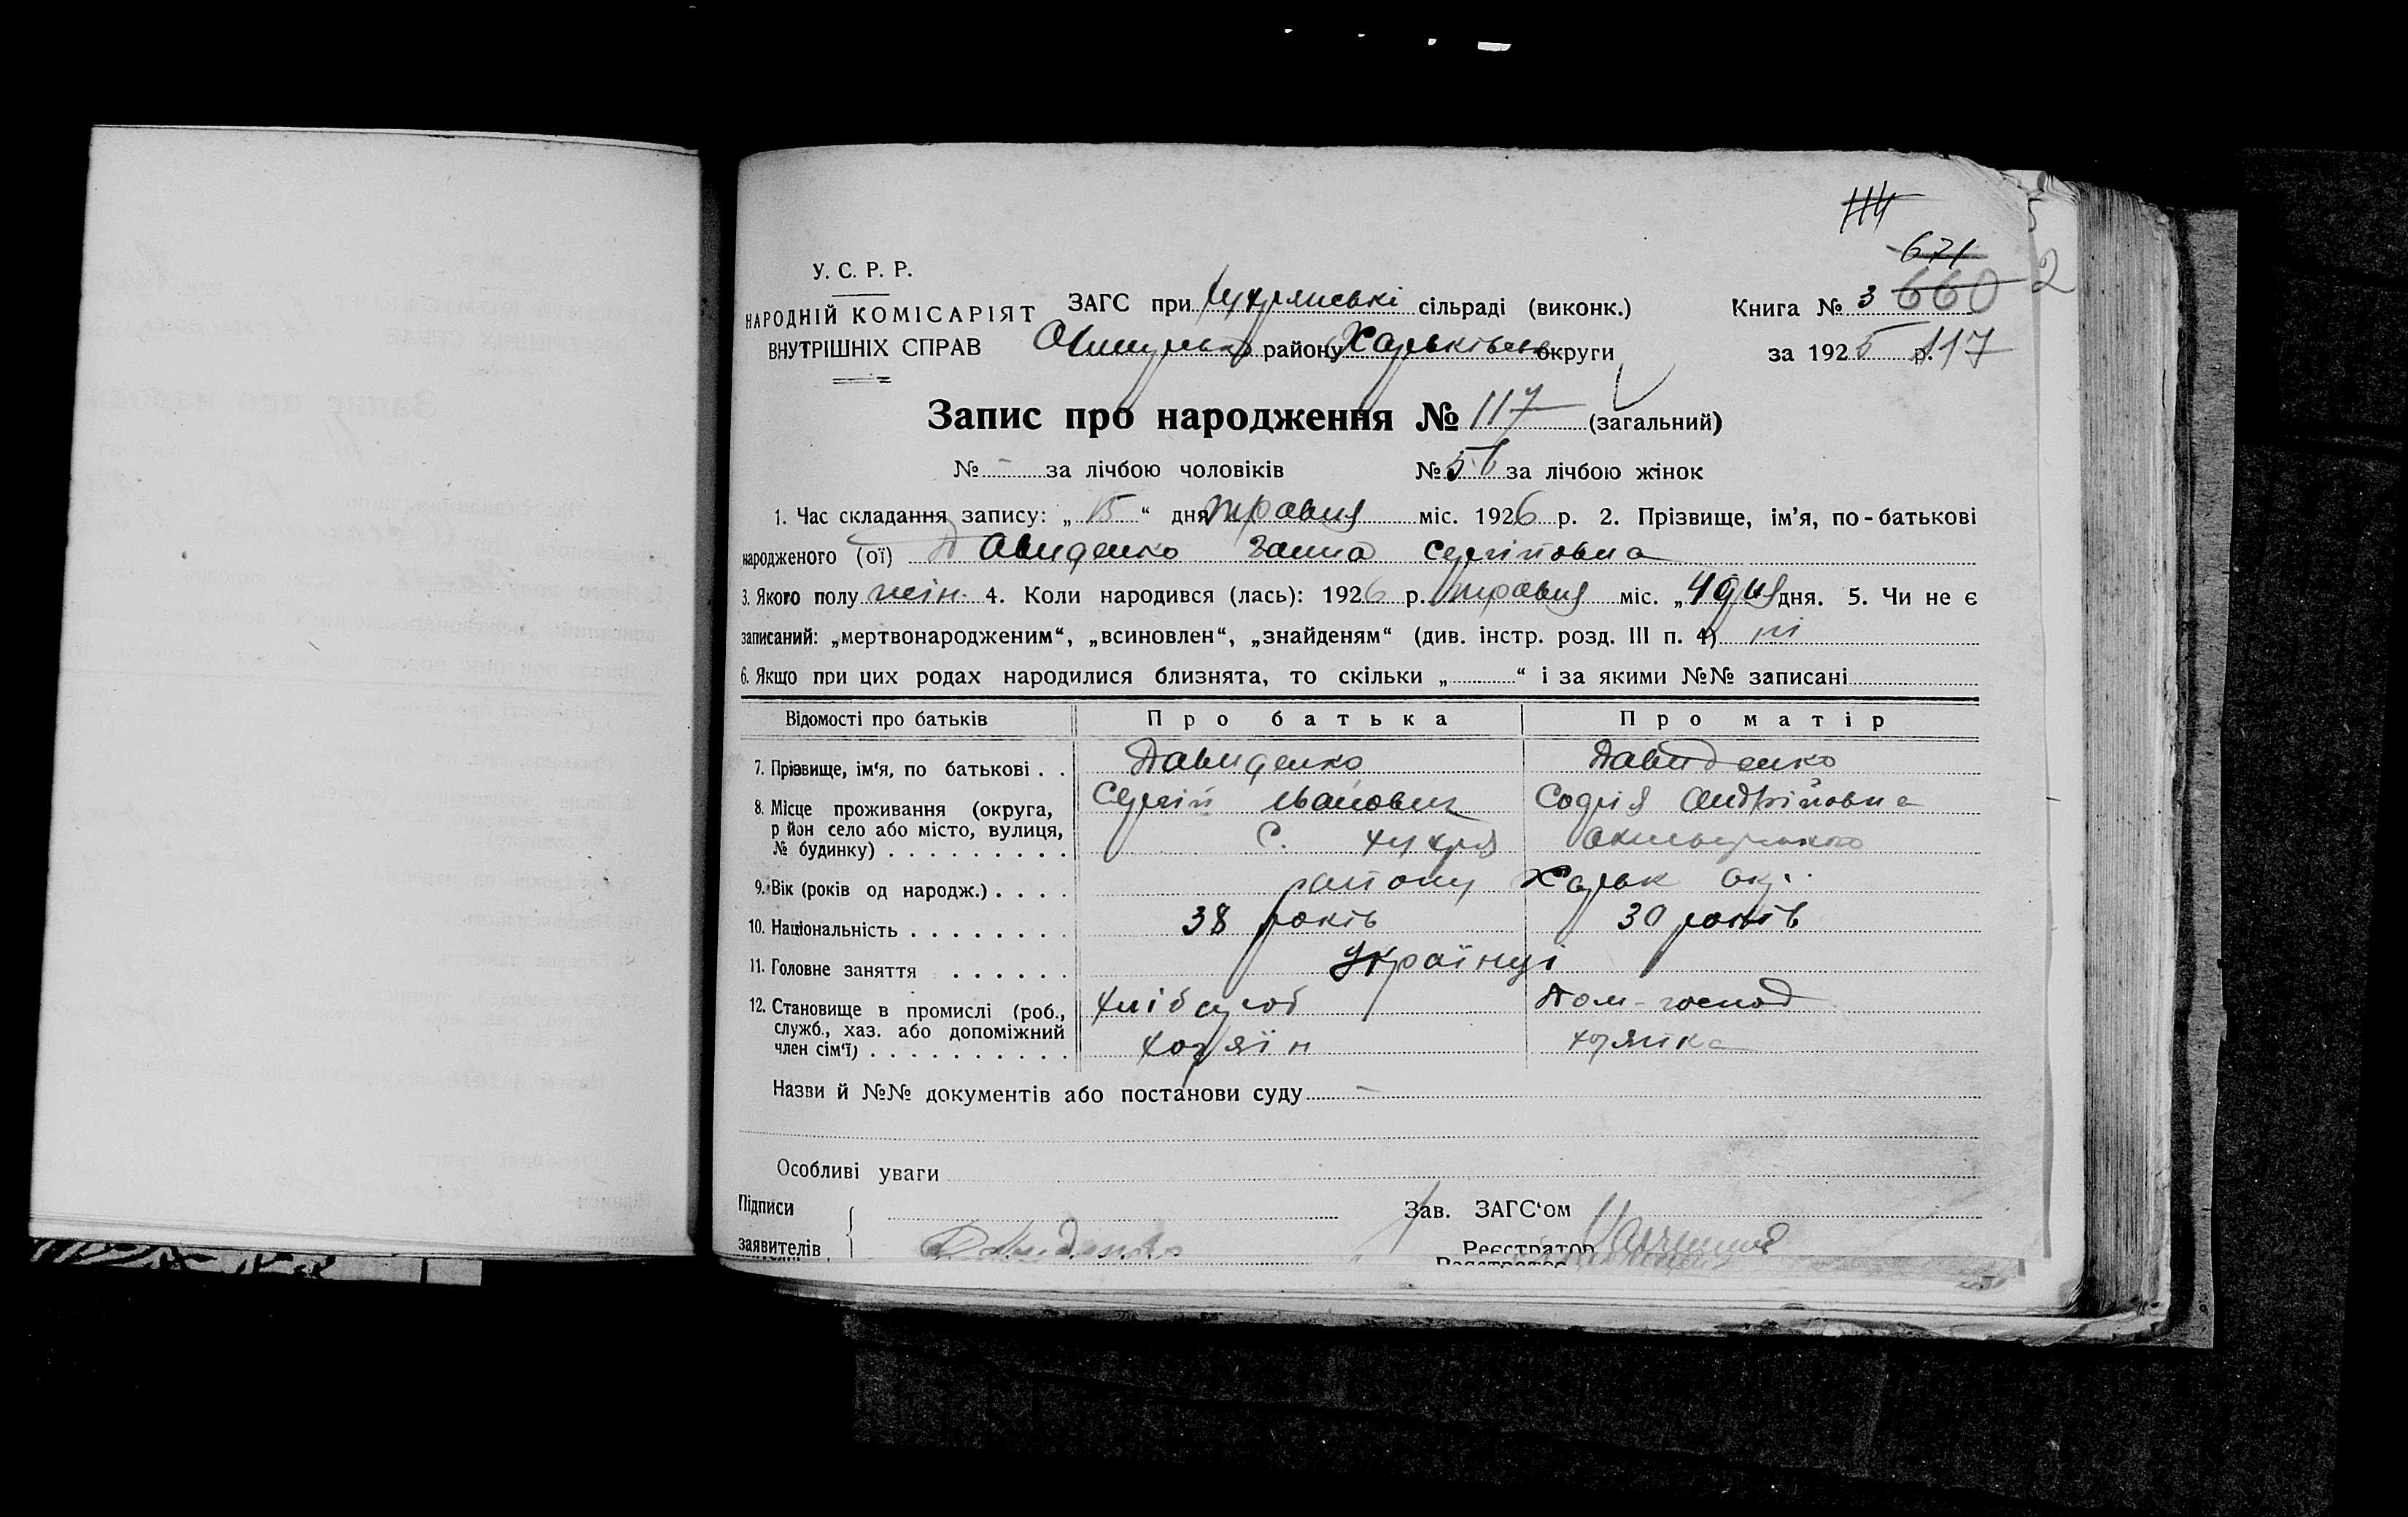 114
671
У. С. Р. Р.
НАРОДНІЙ КОМІСАРІЯТ ЗАГС при сільраді (виконк.) Книга № 3 660 2
ВНУТРІШНІХ СПРАВ району Харьківськ округи за 1925 р. 117
Запис про народження № 117 (загальний)
№ - за лічбою чоловіків № 56 за лічбою жінок
1. Час складання запису: „ 15 “ дня травня міс. 1926 р. 2. Прізвище, ім’я, по-батькові
народженого (ої) Давиденко Ганна Сергіївна
3. Якого полу жін. 4. Коли народився (лась): 1926 р. травня міс. „ 4 дня. 5. Чи не є
записаний: „мертвонародженим“, „всиновлен“, „знайденям“ (див. інстр. розд. III п. 4) ні
6. Якщо при цих родах народилися близнята, то скільки „ “ і за якими №№ записані
Відомості про батьків Про батька Про матір
7. Прізвище, ім‘я, по батькові . . Давиденко Давиденко
8. Місце проживання (округа, Сергій Іванович Софія Андріївна
р йон село або місто, вулиця,
№ будинку) . . . . . . . . . с.
9. Вік (років од народж.) . . . . району Харьк окр.
10. Національність . . . . . . . . 38 років 30 років
11. Головне заняття . . . . . . Українці
12. Становище в промислі (роб., хлібороб Дом-господ
служб., хаз. або допоміжний
член сім‘ї) . . . . . . . . . . хозяїн хозяйка
Назви й №№ документів або постанови суду -
Особливі уваги
Підписи Зав. ЗАГС‘ом
заявителів Давиденко Реєстратор